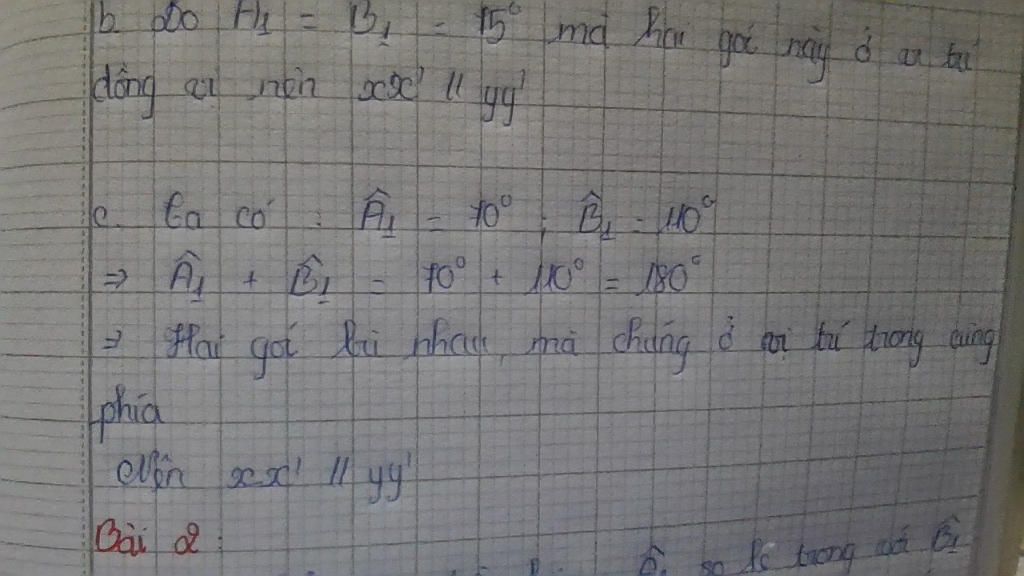 b. Do A₁ = B₁ = 75° mà hai góc này ở vị trí
đồng vị nên xx' // yy'
c. Ta có : Â₁ = 70° ; B̂₁ = 110°
⇒ Â₁ + B̂₁ = 70° + 110° = 180°
⇒ Hai góc bù nhau, mà chúng ở vị trí trong cùng
phía
Nên xx' // yy'
Bài 2 :
so le trong với B̂₁